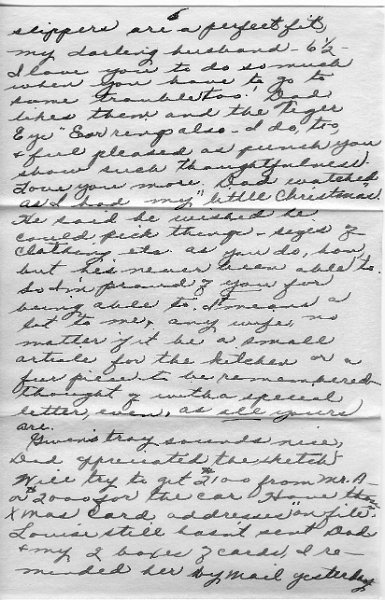 6
slippers are a perfect fit,
my darling husband - 6½ -
I love you to do so much
when you have to go to
some trouble too! Dad
likes them and the Tiger
Eye" Ear rings also - I do, too,
& feel pleased as punch you
show such thoughtfulness.
Love you more. Dad watched
as I had my "little Christmas".
He said he wished he
could pick things - sizes of
clothing etc. as you do, hon,
but he's never been able to.
So I'm proud of you for
being able to. It means a
lot to me, any wife, no
matter if it be a small
article for the kitchen or a
fur piece to be remembered
thought of with a special
letter, even, as all yours
are.
Gwen's tray sounds nice,
Dad appreciated the sketch
Will try to get 2100 from Mr. A-
or 2000 for the car. Have those
Xmas card addresses "on file".
Louise still hasn't sent Dad
& my 2 boxes of cards, I re-
minded her by mail yesterday